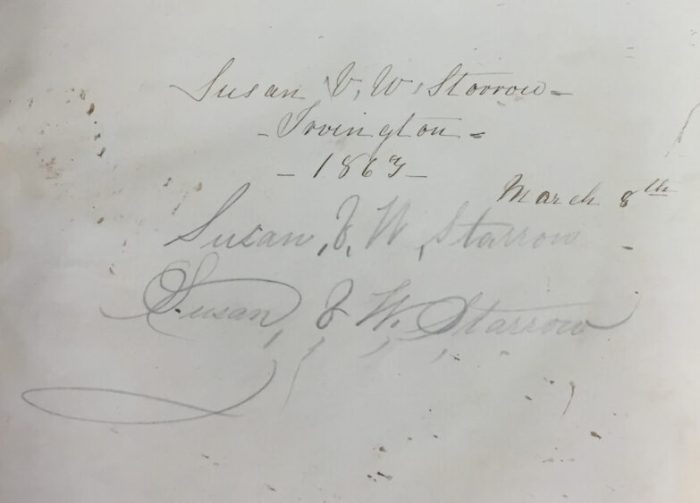 Susan V. W. Storrow -
- Irvington -
- 1863 -
March 8th
Susan, V. W, Starrow -
Susan, V. W. Starrow